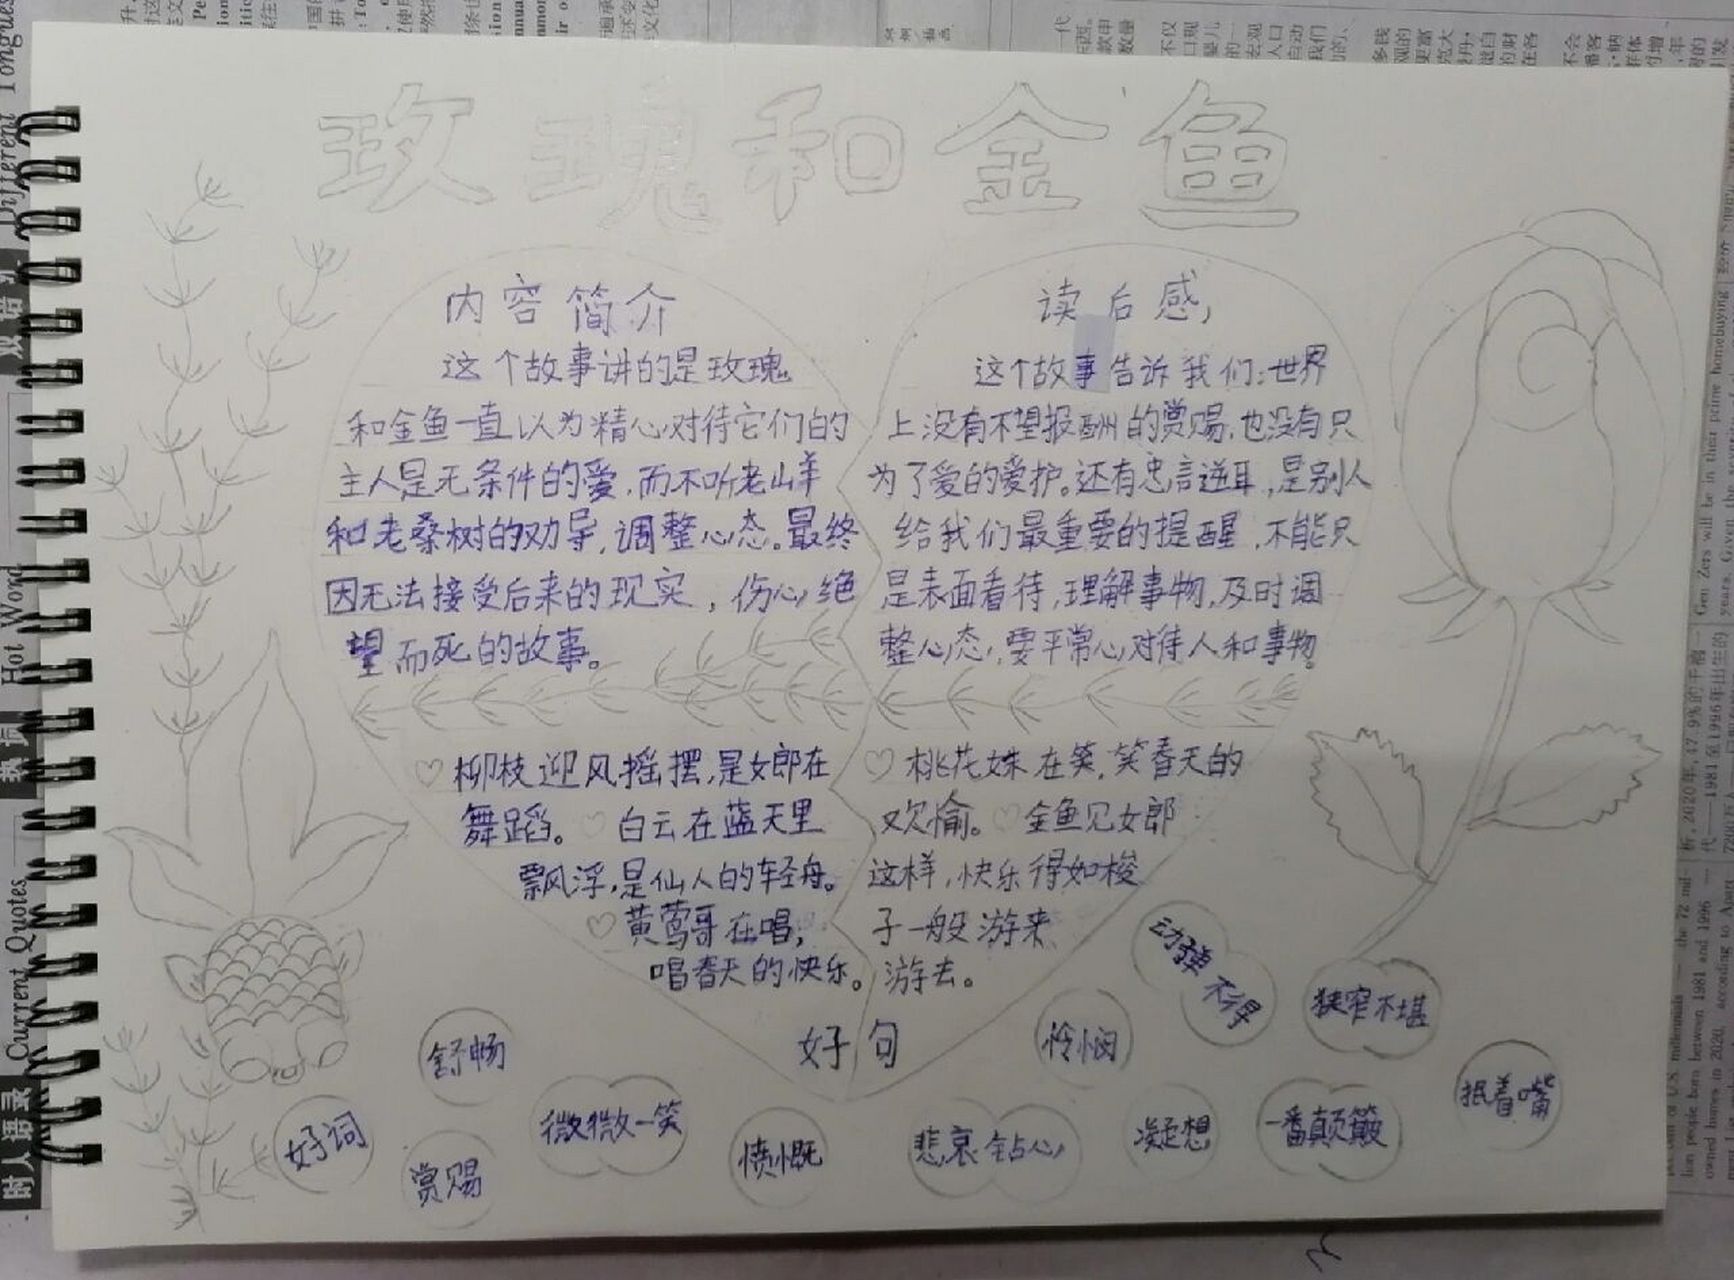 玫瑰和金鱼
内容简介
这个故事讲的是玫瑰
和金鱼一直以为精心对待它们的
主人是无条件的爱,而不听老山羊
和老桑树的劝导,调整心态。最终
因无法接受后来的现实,伤心绝
望而死的故事。
读后感,
这个故事告诉我们:世界
上没有不望报酬的赏赐,也没有只
为了爱的爱护。还有忠言逆耳,是别人
给我们最重要的提醒,不能只
是表面看待,理解事物,及时调
整心态,要平常心对待人和事物。
♡柳枝迎风摇摆,是女郎在
舞蹈。♡白云在蓝天里
飘风浮,是仙人的轻舟。
♡黄莺哥在唱,
唱春天的快乐。
♡桃花妹在笑,笑春天的
欢愉。♡金鱼见女郎
这样,快乐得如梭
子一般游来
游去。
好句
好词
舒畅
赏赐
微微一笑
愤慨
悲哀钻心
怜悯
凝想
动弹不得
狭窄不堪
一番颠簸
抿着嘴
时人语录 Current Quotes
热词 Hot Word
双语 Different Tongues